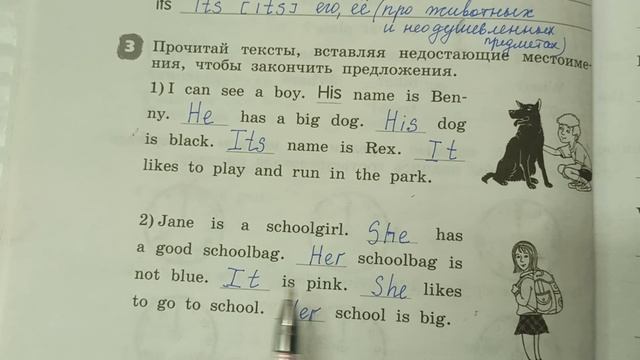 its Its [ıts] его, её (про животных
и неодушевленных
предметах)
3 Прочитай тексты, вставляя недостающие местоиме-
ния, чтобы закончить предложения.
1) I can see a boy. His name is Ben-
ny. He has a big dog. His dog
is black. Its name is Rex. It
likes to play and run in the park.
2) Jane is a schoolgirl. She has
a good schoolbag. Her schoolbag is
not blue. It is pink. She likes
to go to school. Her school is big.